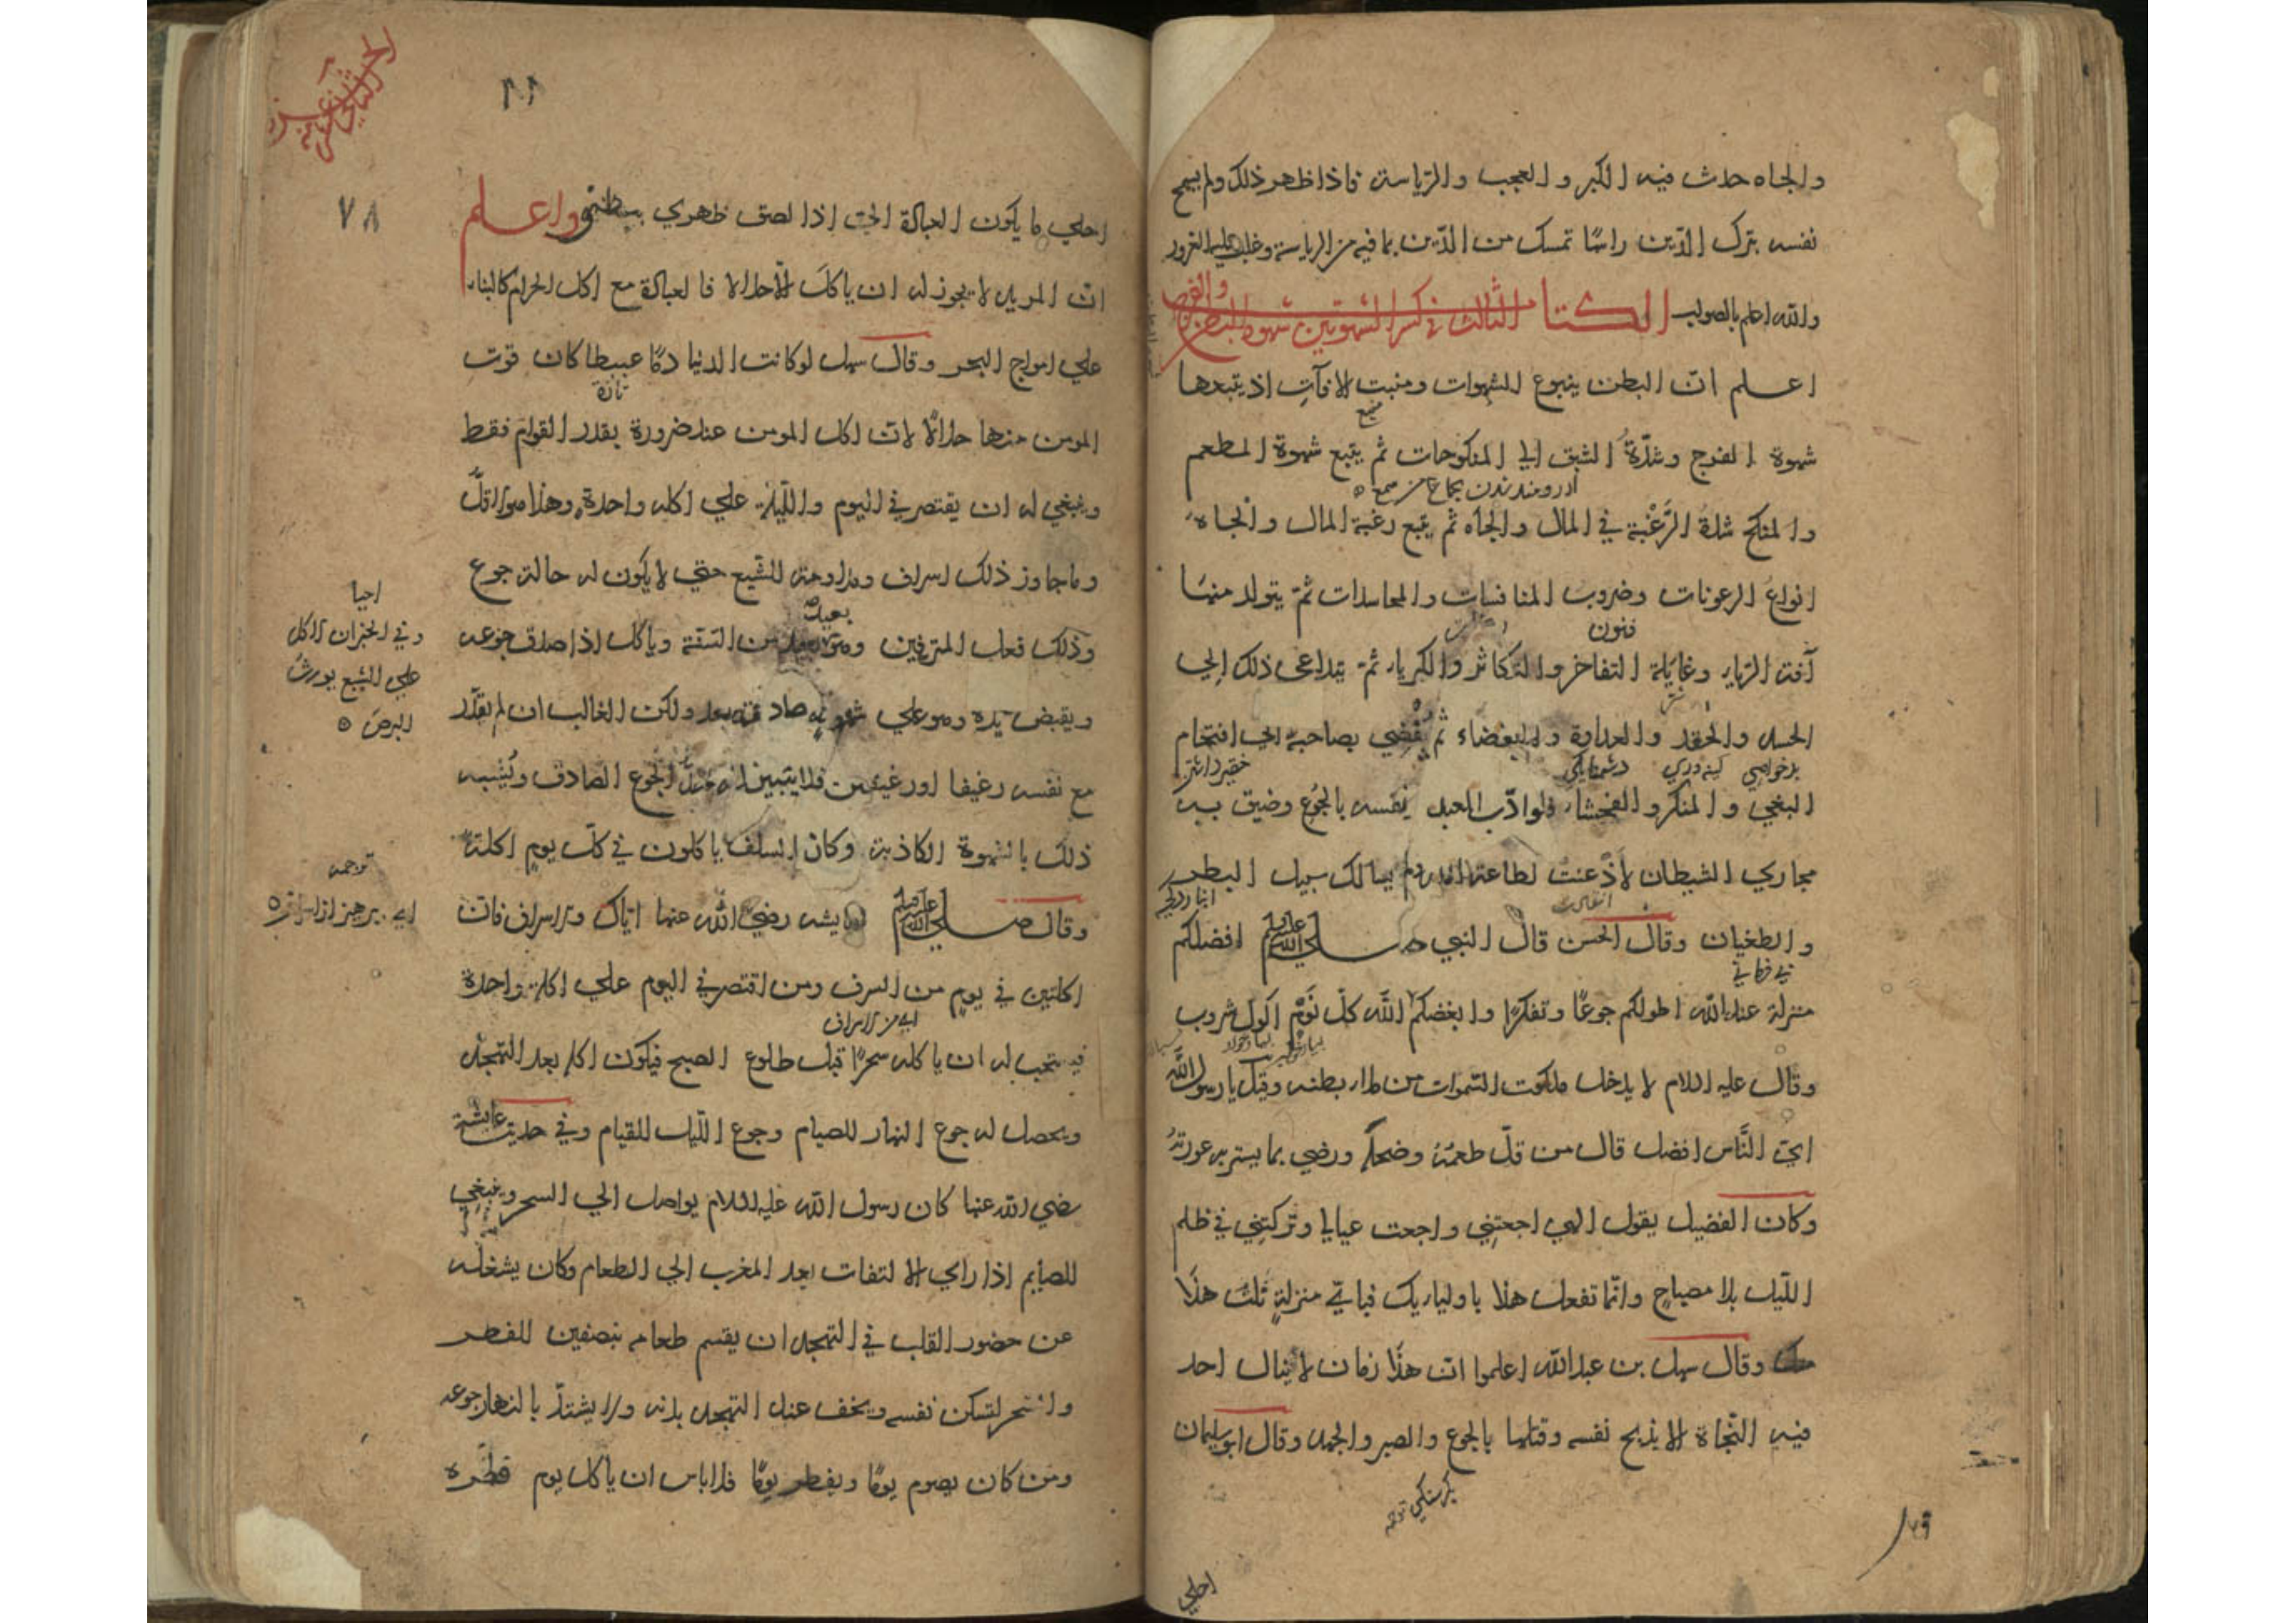 والجاه حدث فيه الكبر والعجب والرياسة فاذا ظهر ذلك ولم يسمح
نفسه بترك الدّين راسًا تمسك من الدّين بما فيه من الرياسة وغلب عليه الغرور
والله اعلم بالصواب الكتاب الثالث في كسر الشهوتين شهوة البطن والفرج
اعلم انّ البطن ينبوع الشهوات ومنبت الافآتِ اذ يتبعها
منبع
شهوة الفرج وشدّةُ الشبق الي المنكوحات ثم يتبع شهوة المطعم
والمنكح شدة الرَّغْبة في المال والجاه ثم يتبع رغبة المال والجاه
انواع الرعونات وضروب المنافسات والمحاسدات ثمّ يتولد منهما
فنون
آفت الريا، وغايلة التفاخر والتكاثر والكبريا، ثمّ يتداعى ذلك إلي
الحسد والحقد والعداوة والبغضاء ثم يُفْضي بصاحبه الي اقتحام
بدخواهي كينه وري دشمنايكي
البغي والمنكر والفحشا، فلو ادّب العبد نفسه بالجُوع وضيق به
مجاري الشيطان لاذْعنت لطاعة الله ولم يسالك سبيل البطر
والطغيان وقال الحسن قال النبي صلي الله عليه وسلم افضلكم
بي فرماني
منزلة عند الله اطولكم جوعًا وتفكرًا وابغضكم الله كلّ نَوْمٍ اكول شروب
وقال عليه السلام لا يدخل ملكوت السّموات من ملا، بطنه وقيل يا رسول الله
ايّ النَّاس افضل قال من قلّ طعمُهُ وضحكُه ورضي بما يستر به عورته
وكان الفضيل يقول الهي اجعتني واجعت عيالي وتركتني في ظلم
اللّيل بلا مصباحٍ وانّما تفعل هذا باوليايك فباي منزلةٍ نلت هذا
منك وقال سهل بن عبد الله اعلموا انّ هذا زمان لا ينال احد
فيه النّجاة الا بذبح نفسه وقتلها بالجوع والصبر والجهد وقال ابو سليمان
احلي
١١
٧٨
احلي ما يكون العبادة اليّ اذا لصق ظهري ببطني واعلم
انّ المريد لا يجوز له ان ياكلَ الّا حلالا فالعبادة مع اكل الحرام كالبناء
علي امواج البحر وقال سهل لو كانت الدنيا دمًا عبيطا كان قوت
تازه
المومن منها حلالًا لانّ اكل المومن عند ضرورة بقدر القوام فقط
وينبغي له ان يقتصر في اليوم واللّيلة علي اكله واحدة وهذا هو الاقلّ
وما جاوز ذلك اسراف ومداومة للشّبع حتي لا يكون له حالة جوع
وذلك فعل المترفين وهو بعيد من السّنة وياكل اذا صدق جوعه
بعيد
ويقبض يده وهو علي شهوته صادقة بعد ولكن الغالب ان لم يقدّر
مع نفسه رغيفا او رغيفين فلا يتبين له حدّ الجوع الصادق ويُشْبه
ذلك بالشهوة الكاذبة وكان السلف ياكلون في كلّ يومٍ اكلة
وقال صلي الله عليه وسلم لعايشه رضي الله عنها ايّاك والاسراف فانّ
اكلتين في يومٍ من السرف ومن اقتصر في اليوم علي اكلة واحدة
اي من الاسراف
فيستحب له ان ياكله سحرًا قبل طلوع الصبح فيكون اكله بعد التهجّد
ويحصل له جوع النهار للصيام وجوع اللّيل للقيام وفي حديث عايشة
رضي الله عنها كان رسول الله عليه السلام يواصل الي السحر وينبغي
للصايم اذا راي الالتفات بعد المغرب الي الطعام وكان يشغله
عن حضور القلب في التهجد ان يقسم طعامه بنصفين للفطر
والسحر لتسكن نفسه ويخف عند التهجد بدنه ولا يشتدّ بالنهار جوعه
ومن كان يصوم يومًا ويفطر يومًا فلا باس ان ياكل يوم فطره
احيا
وفي الخبر ان الاكل
علي الشبع يورث
البرص
ترجمه